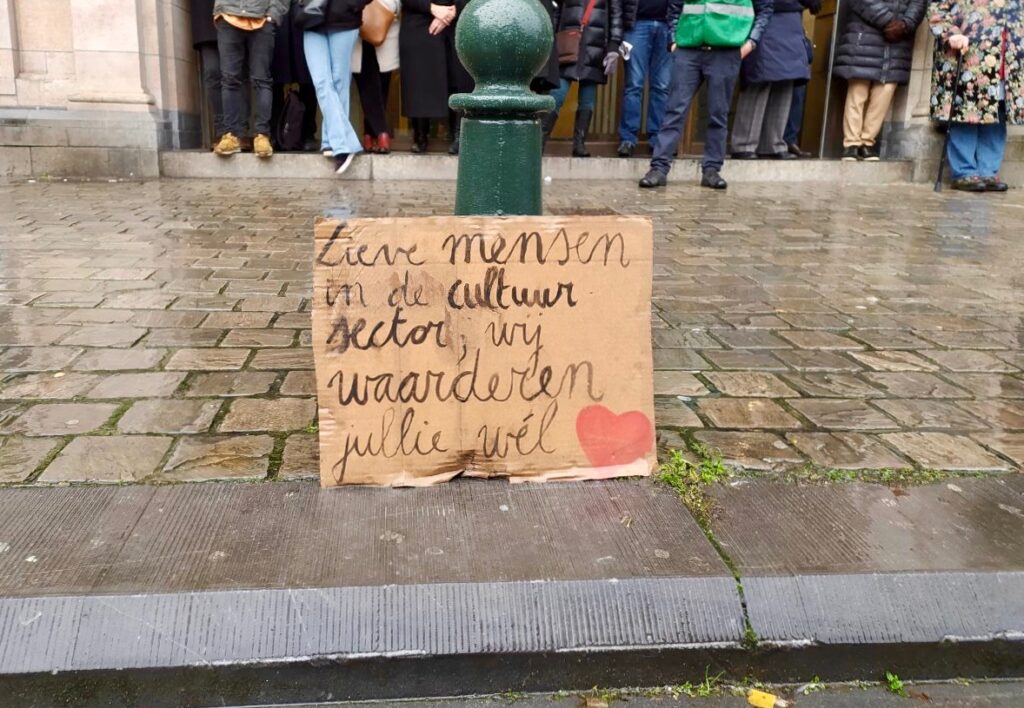 Lieve mensen
in de cultuur
sector, wij
waarderen
jullie wél